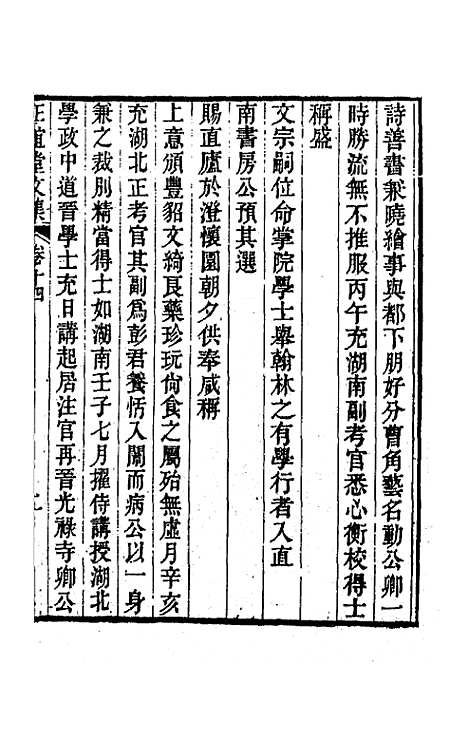 詩善書兼曉繪事與都下朋好分曹角藝名動公卿一
時勝流無不推服丙午充湖南副考官悉心衡校得士
稱盛
文宗嗣位命掌院學士舉翰林之有學行者入直
南書房公預其選
賜直廬於澄懷園朝夕供奉咸稱
上意頒豐貂文綺良藥珍玩尙食之屬殆無虛月辛亥
充湖北正考官其副爲彭君養恬入闈而病公以一身
兼之裁別精當得士如湖南壬子七月擢侍講授湖北
學政中道晉學士充日講起居注官再晉光祿寺卿公
堂文集 卷十四